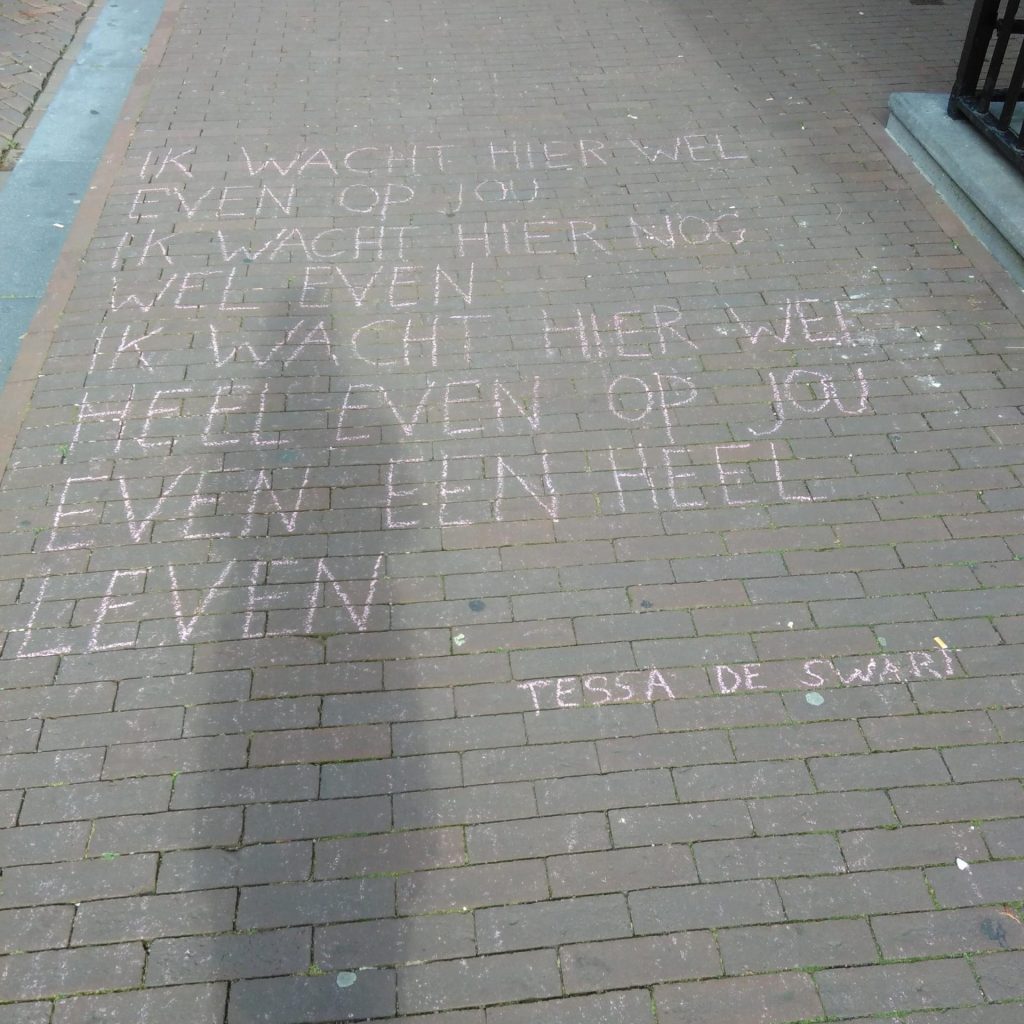 IK WACHT HIER WEL
EVEN OP JOU
IK WACHT HIER NOG
WEL EVEN
IK WACHT HIER WEL
HEEL EVEN OP JOU
EVEN EEN HEEL
LEVEN
TESSA DE SWART